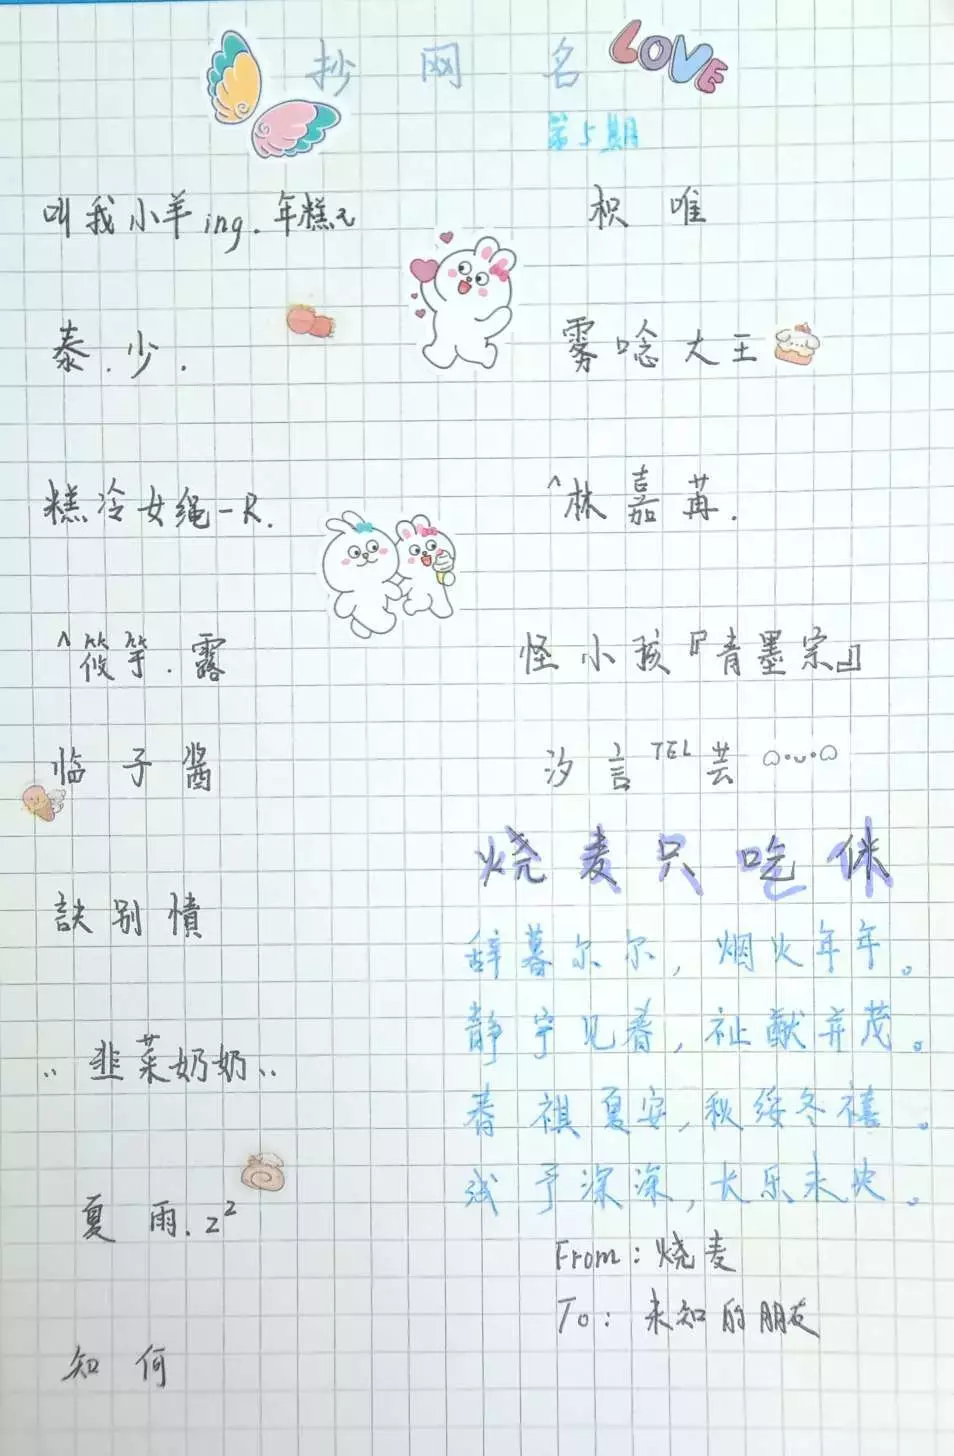 抄网名
LOVE
第5期
叫我小羊ing.年糕z
枳唯
泰.少.
雾唸大王
糕冷女绳-R.
^林嘉苒.
^筱竽.露
怪小孩『青墨宗』
临子酱
汐言TEL芸
訣别憤
烧麦只吃侎
辞暮尔尔，烟火年年。
静宁见春，祉猷并茂。
..韭菜奶奶..
春祺夏安，秋绥冬禧。
浅予深深，长乐未央。
夏雨.z²
From：烧麦
To：未知的朋友
知何